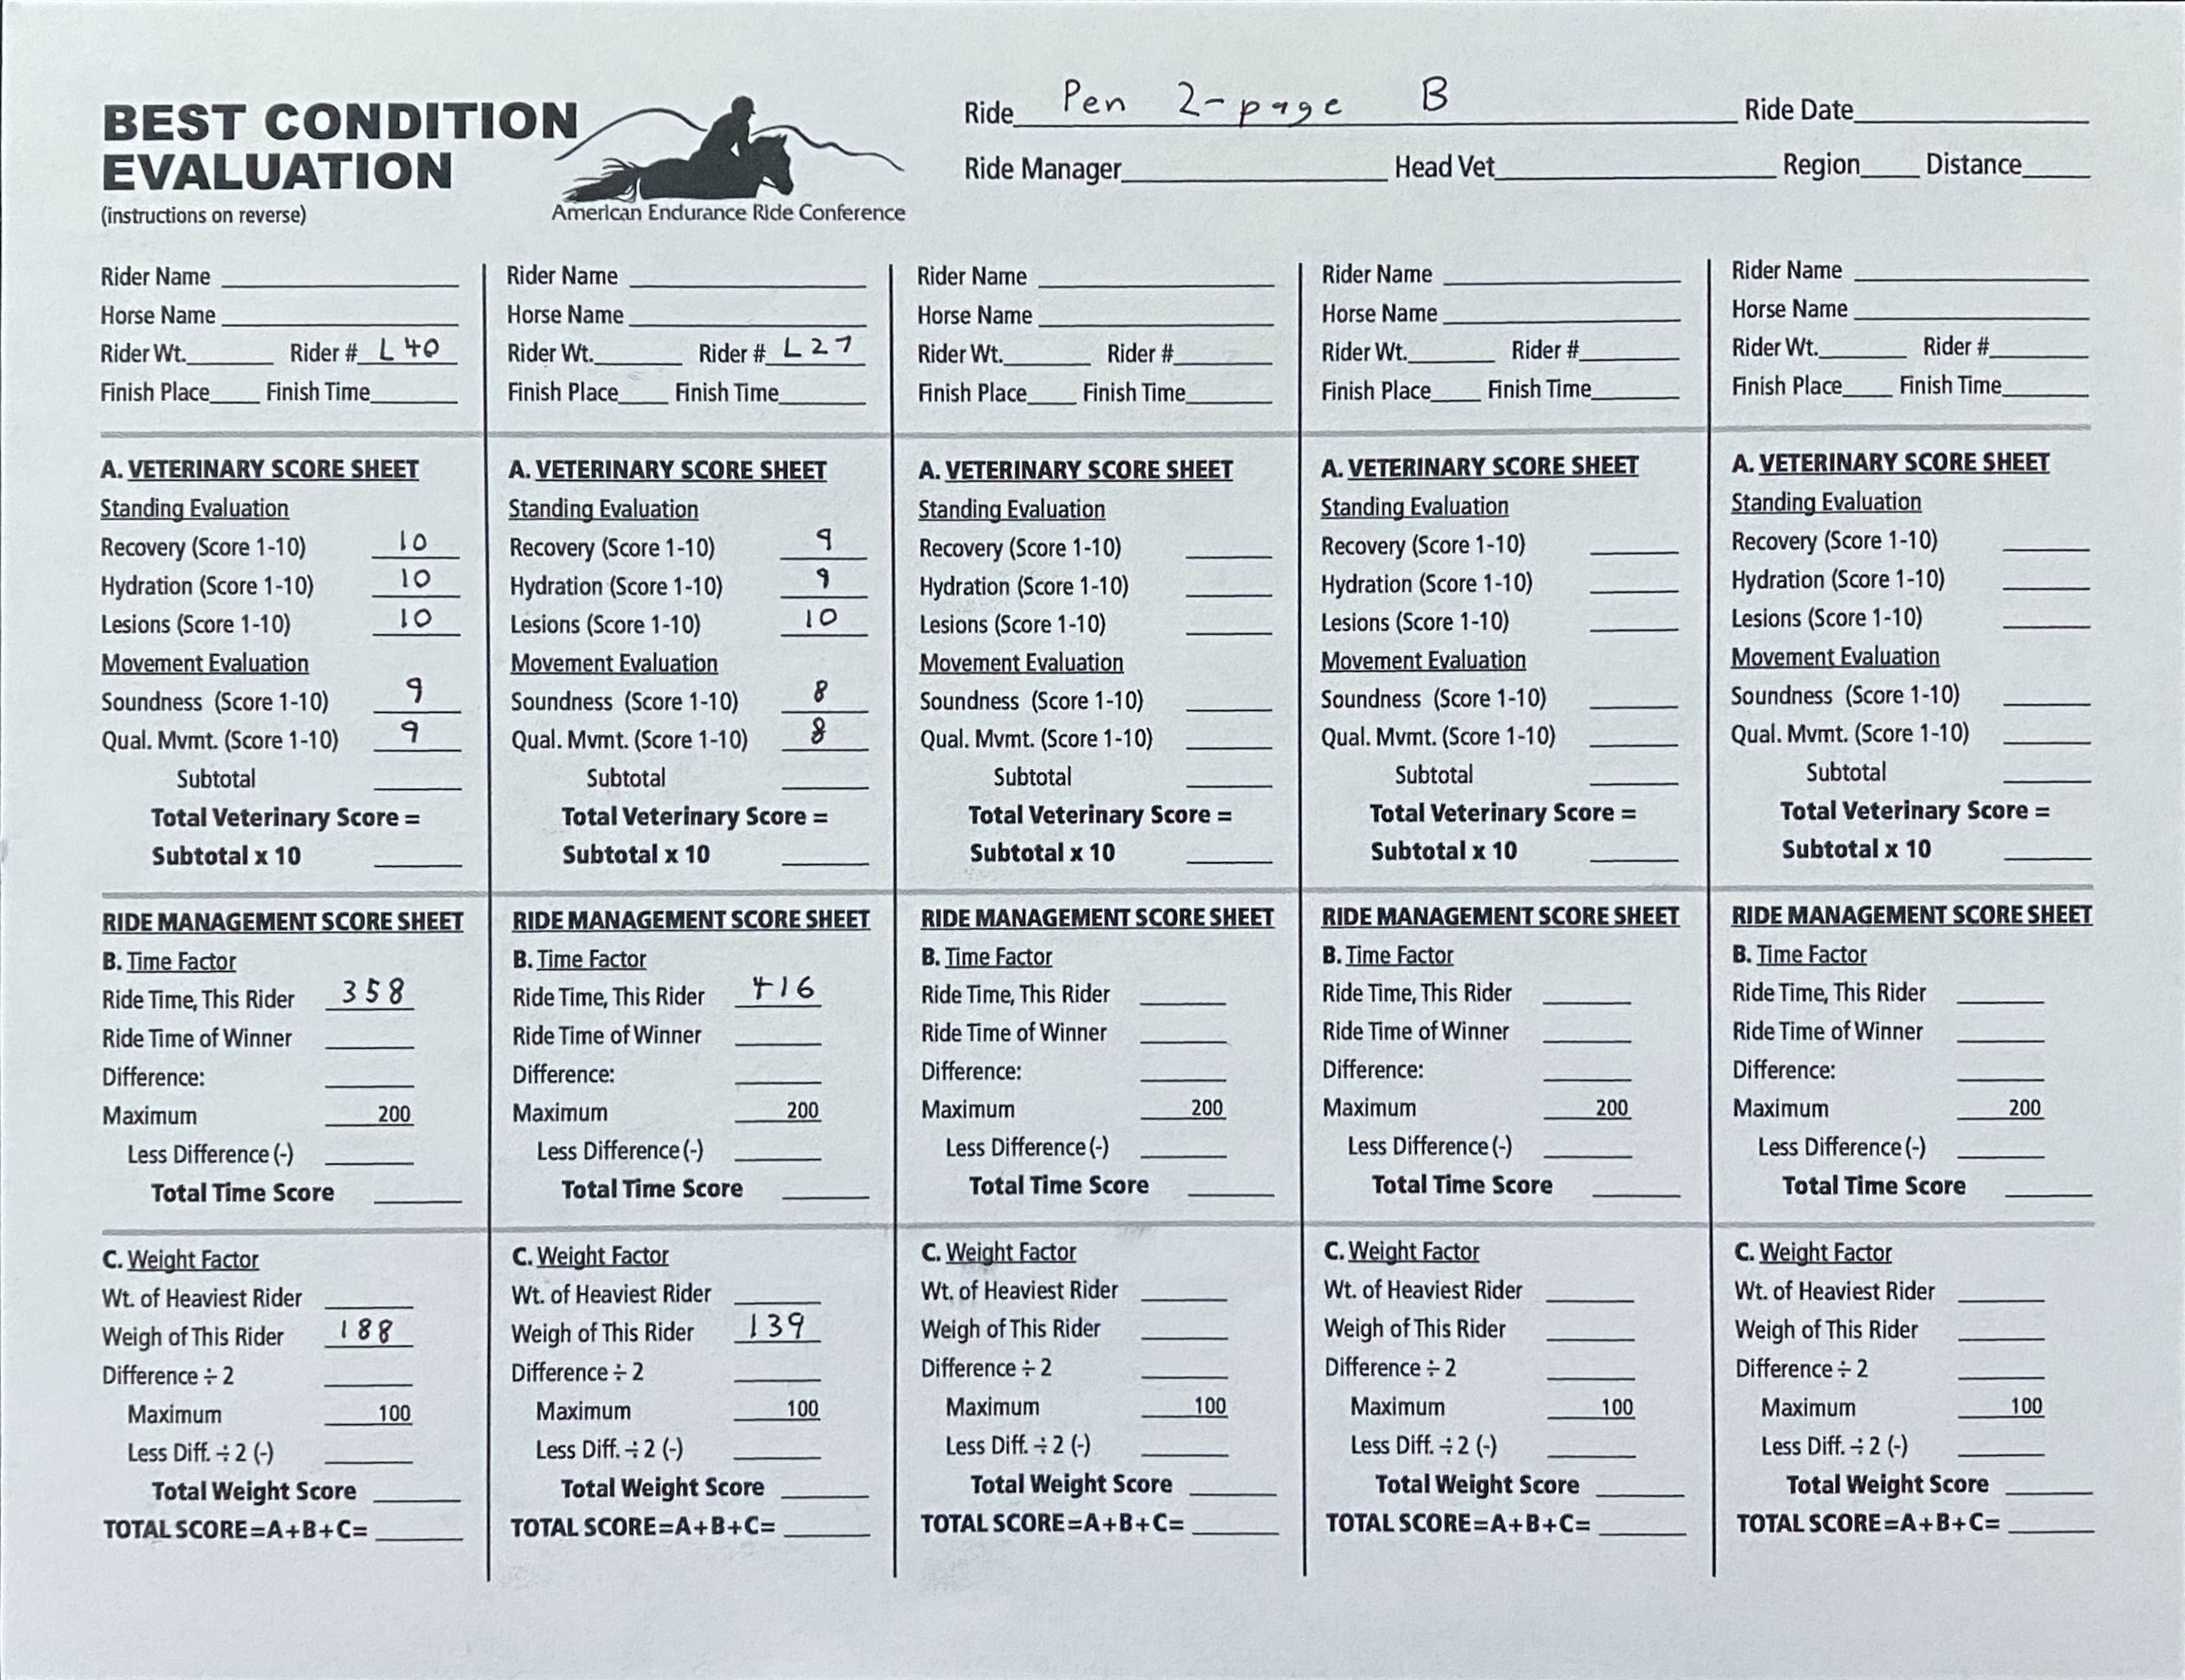 BEST CONDITION EVALUATION
(instructions on reverse)
American Endurance Ride Conference
Ride Pen 2-page B Ride Date
Ride Manager Head Vet Region Distance
Rider Name
Horse Name
Rider Wt. Rider # L 40
Finish Place Finish Time
A. VETERINARY SCORE SHEET
Standing Evaluation
Recovery (Score 1-10) 10
Hydration (Score 1-10) 10
Lesions (Score 1-10) 10
Movement Evaluation
Soundness (Score 1-10) 9
Qual. Mvmt. (Score 1-10) 9
Subtotal
Total Veterinary Score =
Subtotal x 10
RIDE MANAGEMENT SCORE SHEET
B. Time Factor
Ride Time, This Rider 358
Ride Time of Winner
Difference:
Maximum 200
Less Difference (-)
Total Time Score
C. Weight Factor
Wt. of Heaviest Rider
Weigh of This Rider 188
Difference ÷ 2
Maximum 100
Less Diff. ÷ 2 (-)
Total Weight Score
TOTAL SCORE=A+B+C=
Rider Name
Horse Name
Rider Wt. Rider # L 27
Finish Place Finish Time
A. VETERINARY SCORE SHEET
Standing Evaluation
Recovery (Score 1-10) 9
Hydration (Score 1-10) 9
Lesions (Score 1-10) 10
Movement Evaluation
Soundness (Score 1-10) 8
Qual. Mvmt. (Score 1-10) 8
Subtotal
Total Veterinary Score =
Subtotal x 10
RIDE MANAGEMENT SCORE SHEET
B. Time Factor
Ride Time, This Rider 416
Ride Time of Winner
Difference:
Maximum 200
Less Difference (-)
Total Time Score
C. Weight Factor
Wt. of Heaviest Rider
Weigh of This Rider 139
Difference ÷ 2
Maximum 100
Less Diff. ÷ 2 (-)
Total Weight Score
TOTAL SCORE=A+B+C=
Rider Name
Horse Name
Rider Wt. Rider #
Finish Place Finish Time
A. VETERINARY SCORE SHEET
Standing Evaluation
Recovery (Score 1-10)
Hydration (Score 1-10)
Lesions (Score 1-10)
Movement Evaluation
Soundness (Score 1-10)
Qual. Mvmt. (Score 1-10)
Subtotal
Total Veterinary Score =
Subtotal x 10
RIDE MANAGEMENT SCORE SHEET
B. Time Factor
Ride Time, This Rider
Ride Time of Winner
Difference:
Maximum 200
Less Difference (-)
Total Time Score
C. Weight Factor
Wt. of Heaviest Rider
Weigh of This Rider
Difference ÷ 2
Maximum 100
Less Diff. ÷ 2 (-)
Total Weight Score
TOTAL SCORE=A+B+C=
Rider Name
Horse Name
Rider Wt. Rider #
Finish Place Finish Time
A. VETERINARY SCORE SHEET
Standing Evaluation
Recovery (Score 1-10)
Hydration (Score 1-10)
Lesions (Score 1-10)
Movement Evaluation
Soundness (Score 1-10)
Qual. Mvmt. (Score 1-10)
Subtotal
Total Veterinary Score =
Subtotal x 10
RIDE MANAGEMENT SCORE SHEET
B. Time Factor
Ride Time, This Rider
Ride Time of Winner
Difference:
Maximum 200
Less Difference (-)
Total Time Score
C. Weight Factor
Wt. of Heaviest Rider
Weigh of This Rider
Difference ÷ 2
Maximum 100
Less Diff. ÷ 2 (-)
Total Weight Score
TOTAL SCORE=A+B+C=
Rider Name
Horse Name
Rider Wt. Rider #
Finish Place Finish Time
A. VETERINARY SCORE SHEET
Standing Evaluation
Recovery (Score 1-10)
Hydration (Score 1-10)
Lesions (Score 1-10)
Movement Evaluation
Soundness (Score 1-10)
Qual. Mvmt. (Score 1-10)
Subtotal
Total Veterinary Score =
Subtotal x 10
RIDE MANAGEMENT SCORE SHEET
B. Time Factor
Ride Time, This Rider
Ride Time of Winner
Difference:
Maximum 200
Less Difference (-)
Total Time Score
C. Weight Factor
Wt. of Heaviest Rider
Weigh of This Rider
Difference ÷ 2
Maximum 100
Less Diff. ÷ 2 (-)
Total Weight Score
TOTAL SCORE=A+B+C=